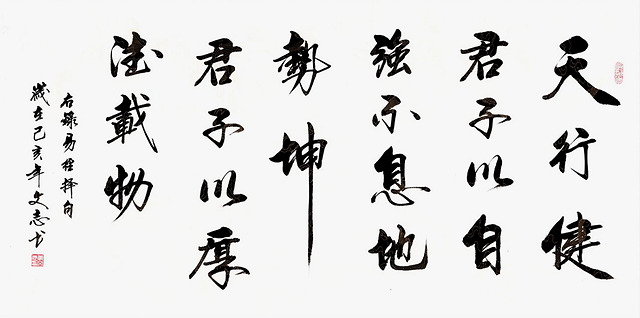 天行健
君子以自
強不息地
勢坤
君子以厚
德載物
右錄易經擇句
歲在己亥年文志书